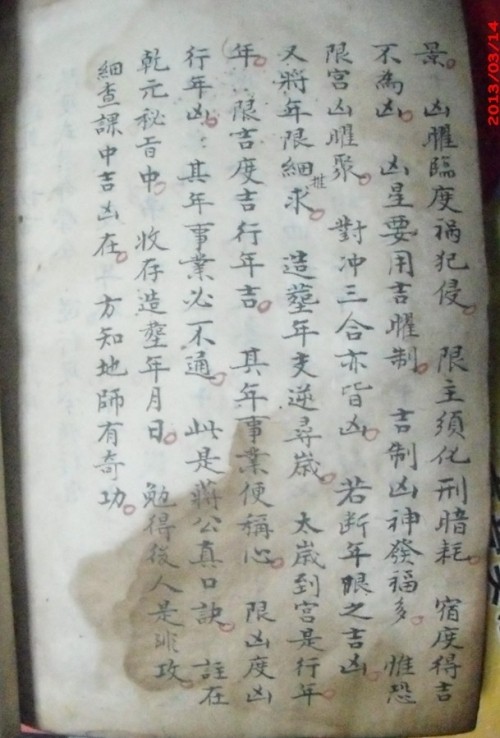 景。凶曜臨度禍犯侵。限主須化刑暗耗。宿度得吉
不為凶。凶星要用吉曜制。吉制凶神發福多。惟恐
限宮凶曜聚。對冲三合亦皆凶。若斷年限之吉凶。
又將年限細推求。造塟年支逆尋歲。太歲到宮是行年。
年。限吉度吉行年吉。其年事業便稱心。限凶度凶
行年凶。其年事業必不通。此是蔣公真口訣。註在
乾元秘旨中。收存造塟年月日。勉得後人是非攻。
細查課中吉凶在。方知地師有奇功。
2013/03/14